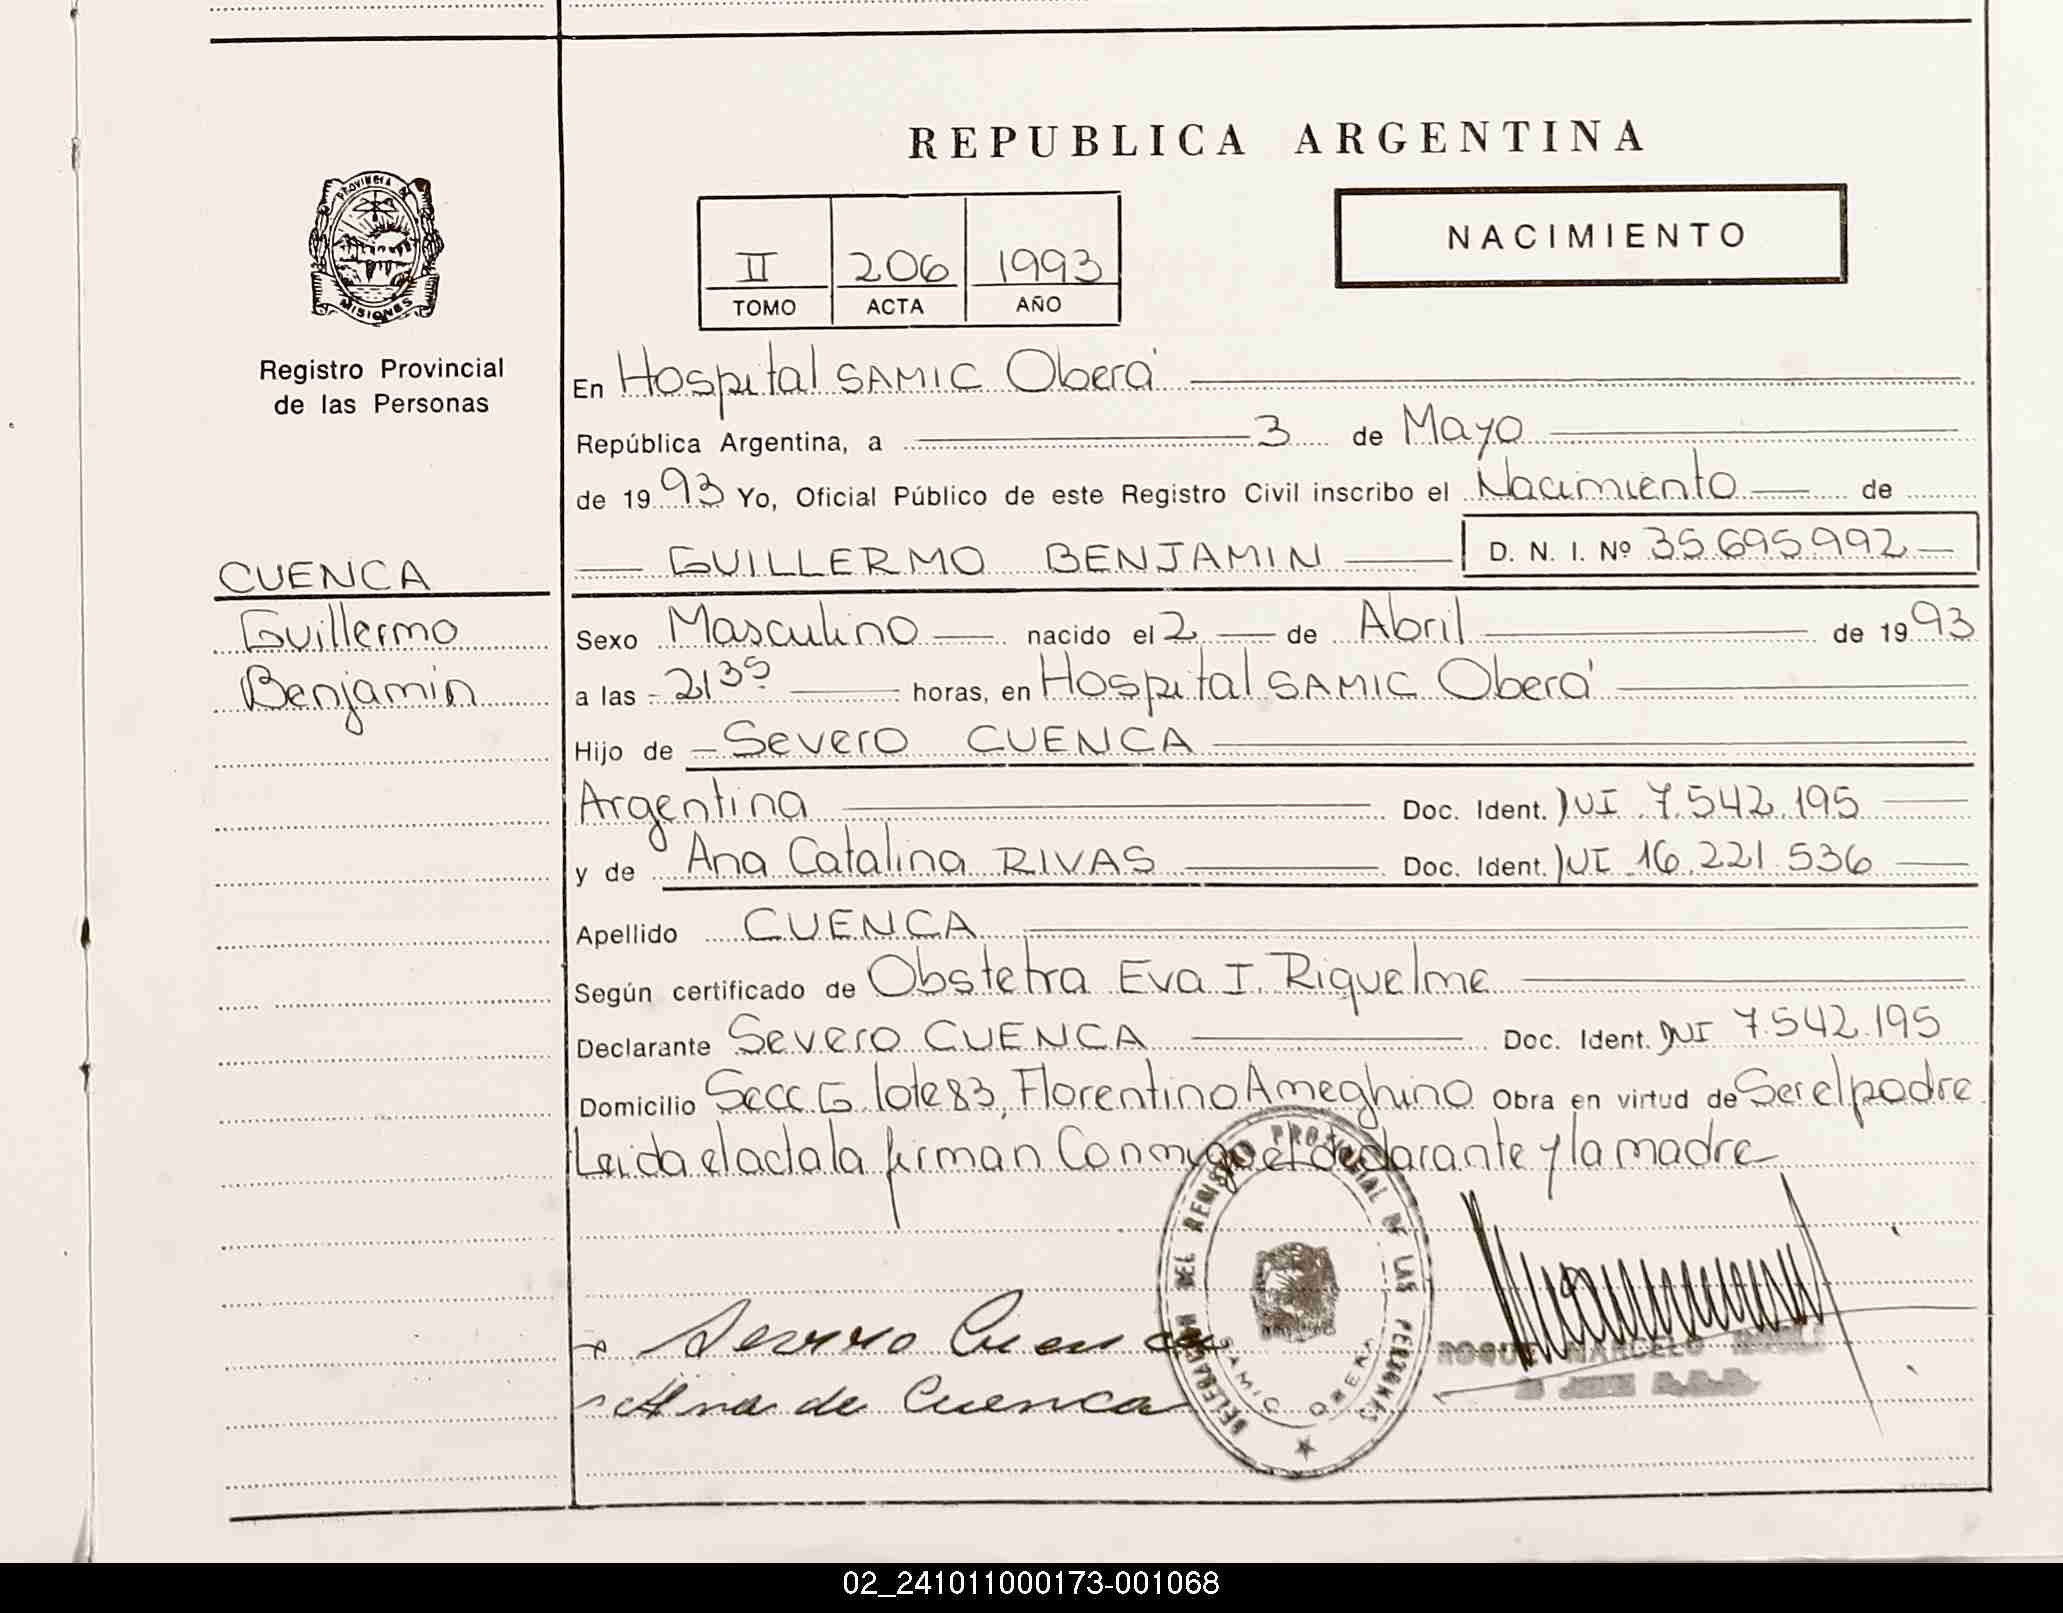 REPUBLICA ARGENTINA
PROVINCIA DE
MISIONES
Registro Provincial
de las Personas
II 206 1993
TOMO ACTA AÑO
NACIMIENTO
CUENCA
Guillermo
Benjamin
En Hospital SAMIC Oberá
República Argentina, a 3 de Mayo
de 1993 Yo, Oficial Público de este Registro Civil inscribo el Nacimiento de
GUILLERMO BENJAMIN D. N. I. Nº 35.695.992
Sexo Masculino nacido el 2 de Abril de 1993
a las 21 35 horas, en Hospital SAMIC Oberá
Hijo de Severo CUENCA
Argentina Doc. Ident. DNI 7.542.195
y de Ana Catalina RIVAS Doc. Ident. DNI 16.221.536
Apellido CUENCA
Según certificado de Obstetra Eva I. Riquelme
Declarante Severo CUENCA Doc. Ident. DNI 7.542.195
Domicilio Secc. G lote 83, Florentino Ameghino Obra en virtud de Ser el padre
Leida el acta la firman Conmigo el declarante y la madre
Severo Cuenca
Ana de Cuenca
DELEGACION DEL REGISTRO PROVINCIAL DE LAS PERSONAS
SAMIC OBERA
ROQUE MARCELO
02_241011000173-001068